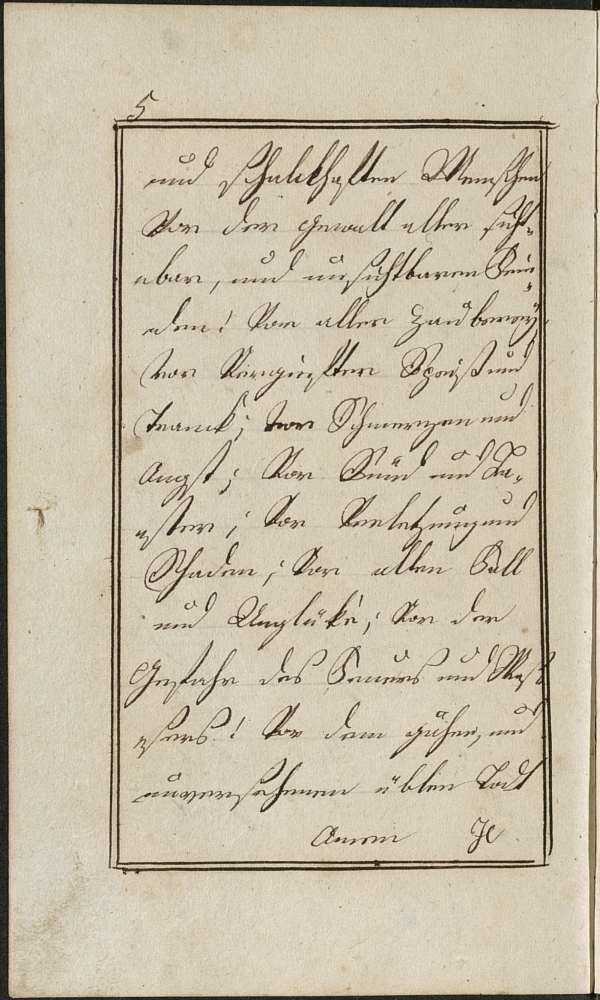 5
und schalckhaften Menschen
Vor der gewalt aller sicht-
abar, und unsichtbaren Fein-
den! Vor aller Zauberey,
vor Vergifter Speiß und
Tranck; vor Schmerzen und
Angst; Vor Sünd und La-
ster; Vor Verletzung und
Schaden; Vor allen Fall
und Unglüke; Vor der
Gefahr des Feuers und Waß
sers! Vor dem gähen, und
unversehenen üblen Todt
Amen Je